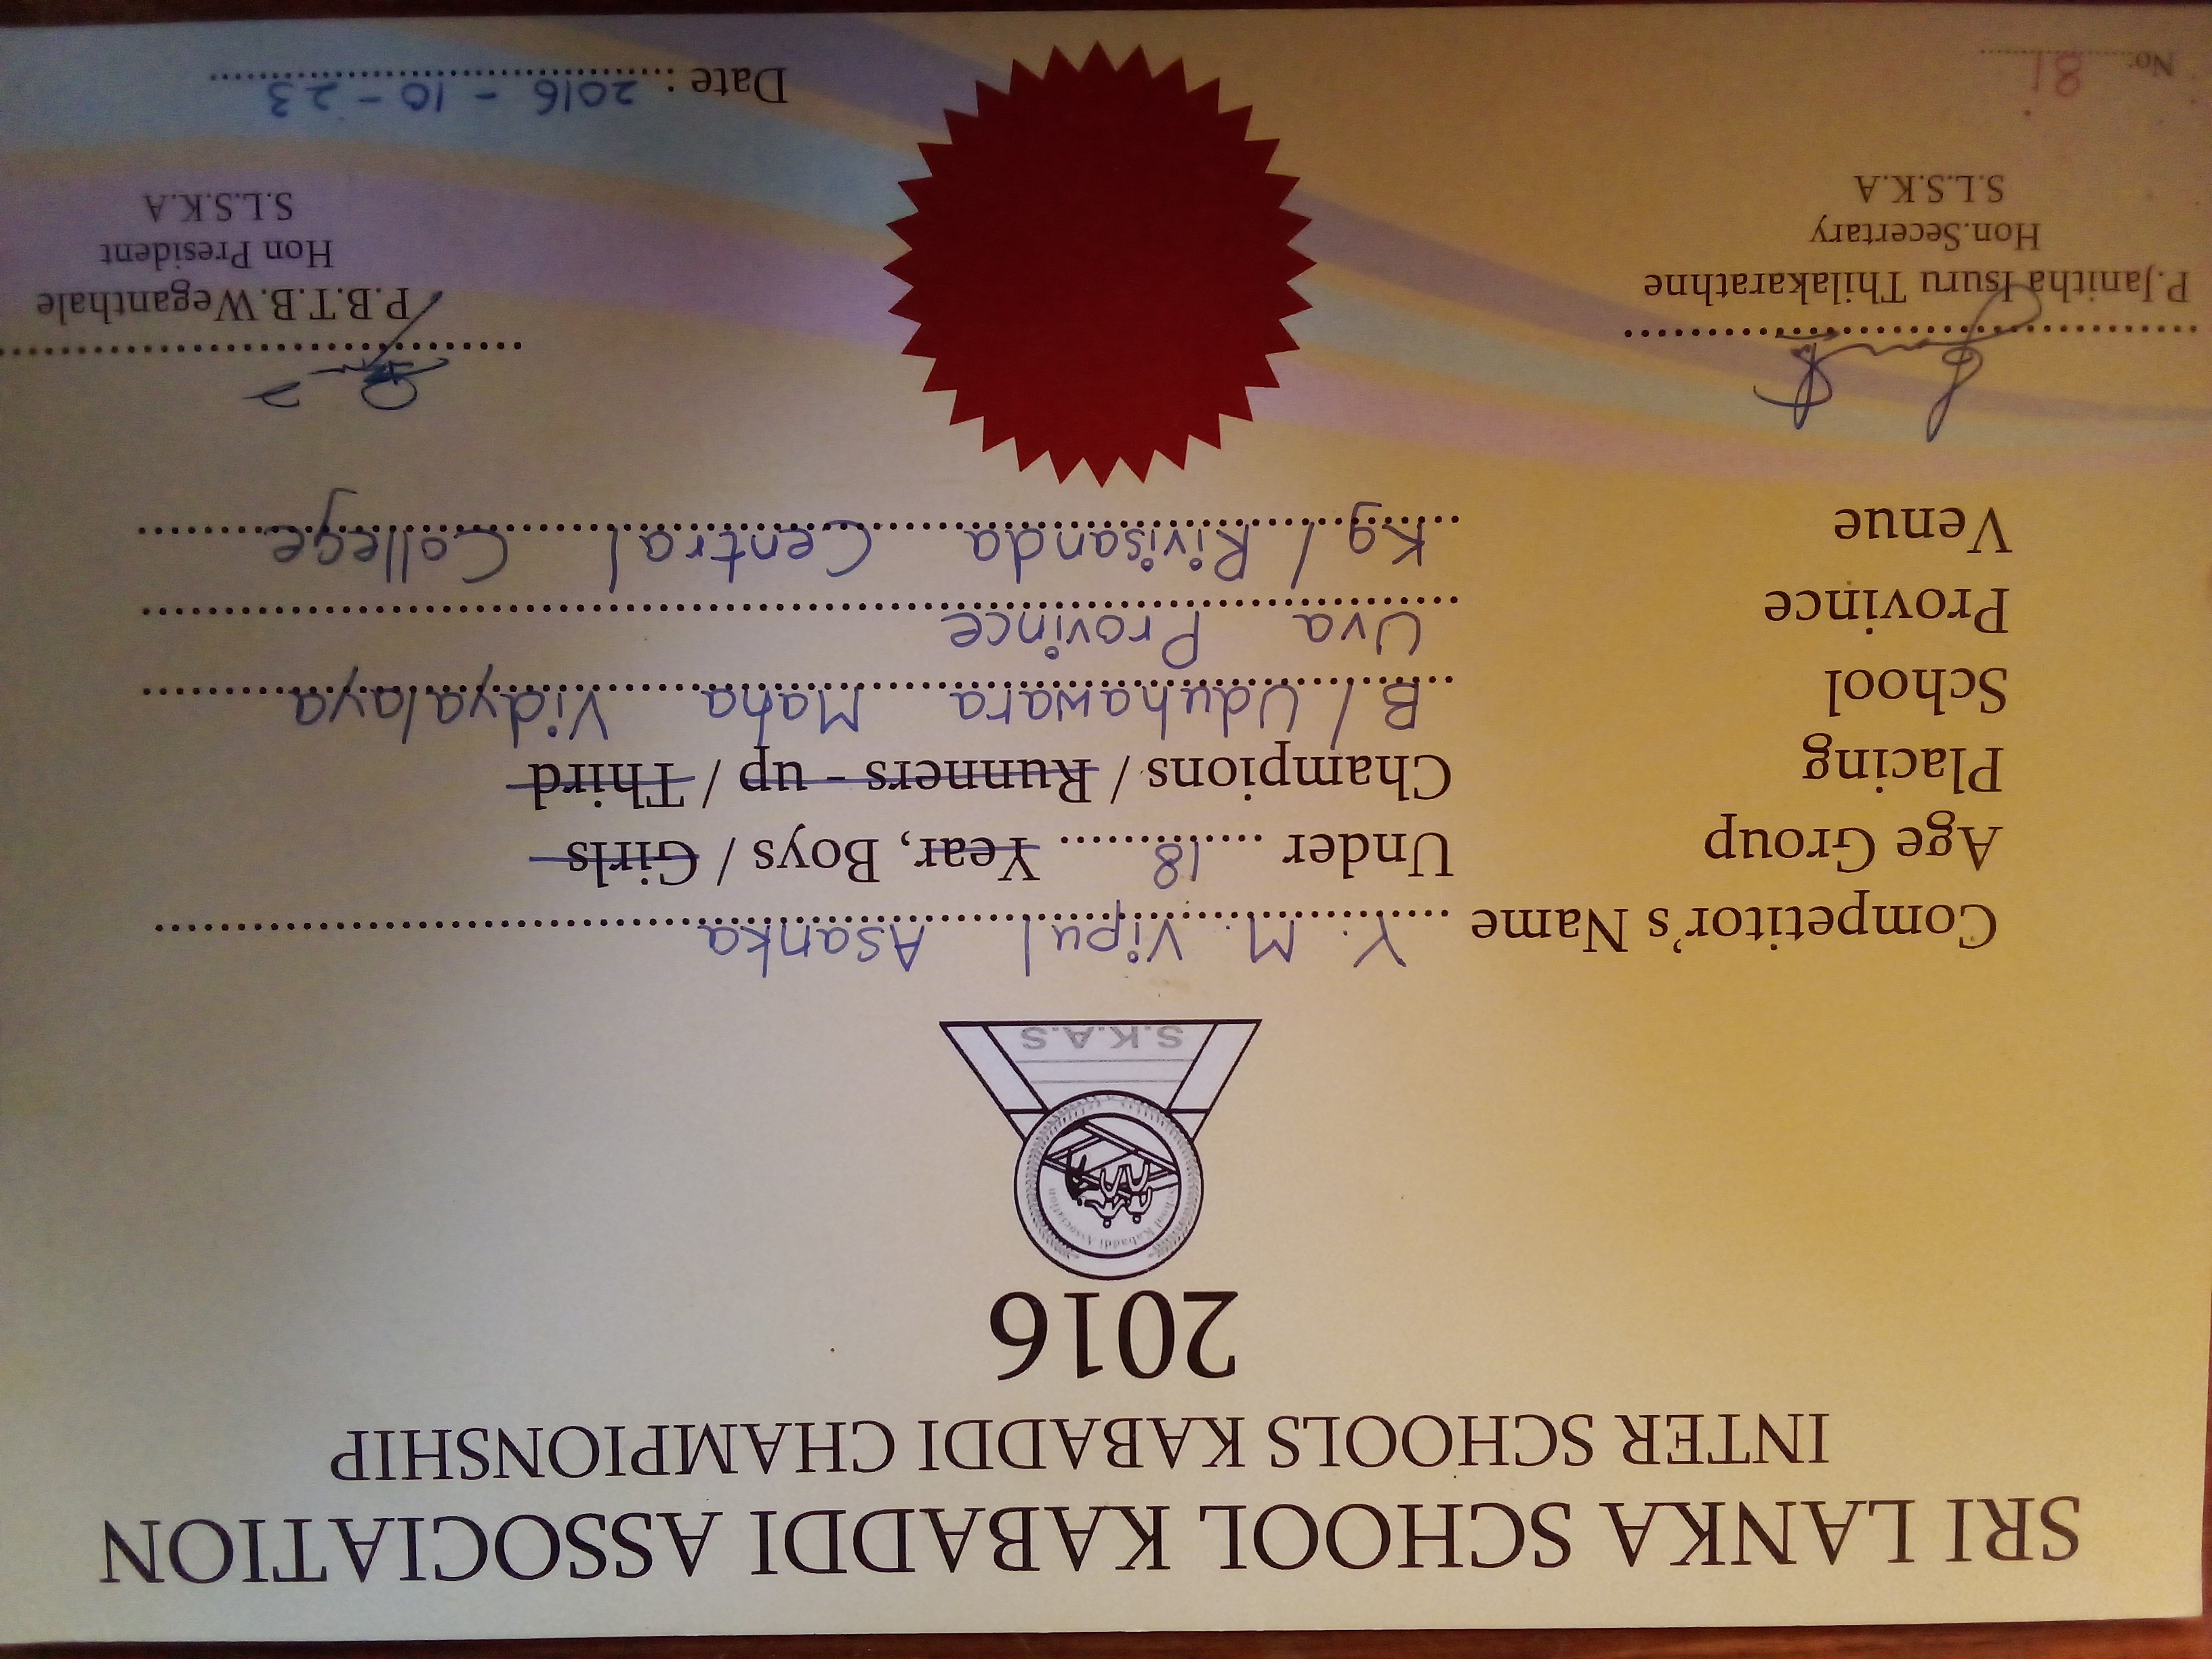 SRI LANKA SCHOOL KABADDI ASSOCIATION
INTER SCHOOLS KABADDI CHAMPIONSHIP
2016
School Kabaddi Association
S.K.A.S
Competitor's Name Y. M. Vipul Asanka
Age Group Under 18 Year, Boys / Girls
Placing Champions / Runners - up / Third
School B/ Uduhawara Maha Vidyalaya
Province Uva Province
Venue Kg / Rivisanda Central College
P.Janitha Isuru Thilakarathne
Hon.Secertary
S.L.S.K.A
P.B.T.B.Weganthale
Hon President
S.L.S.K.A
No: 81
Date : 2016 - 10 - 23